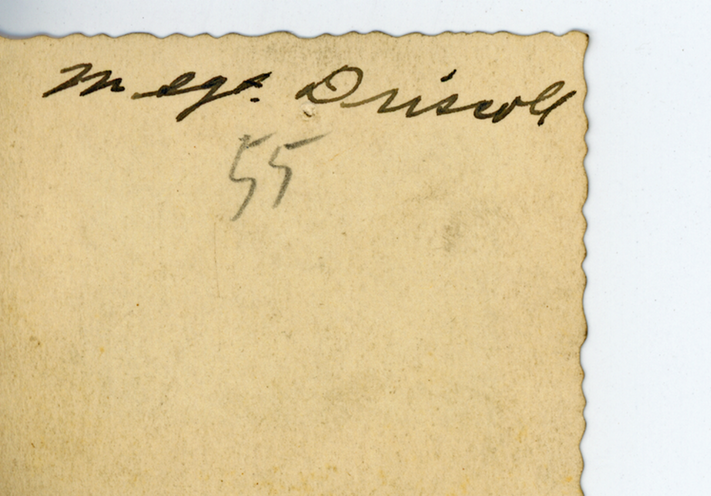 Megr. Driscoll
55